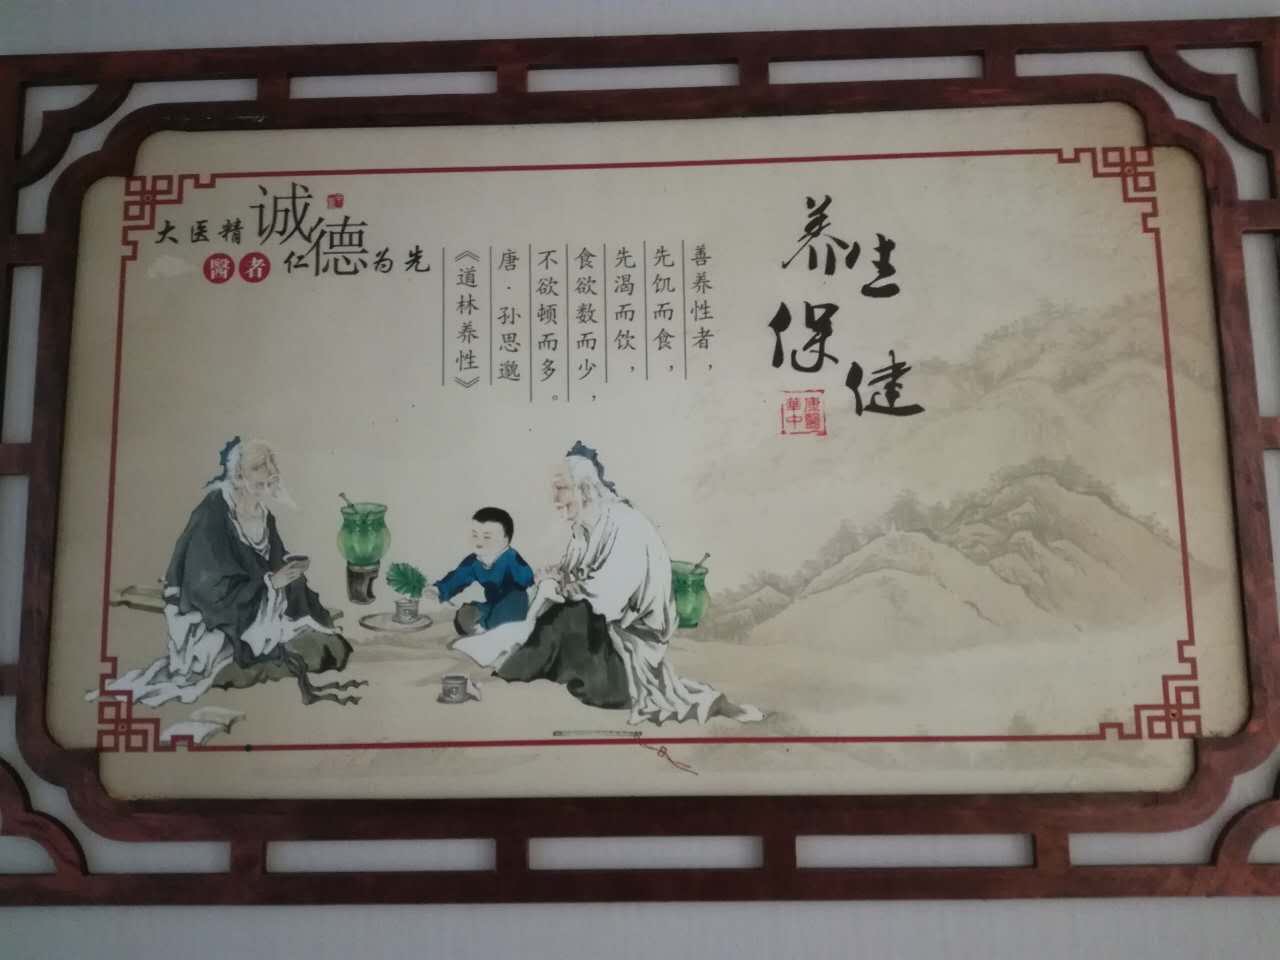 大医精诚
醫者仁德为先
养生
保健
華中
康醫
善养性者，
先饥而食，
先渴而饮，
食欲数而少，
不欲顿而多。
唐·孙思邈
《道林养性》